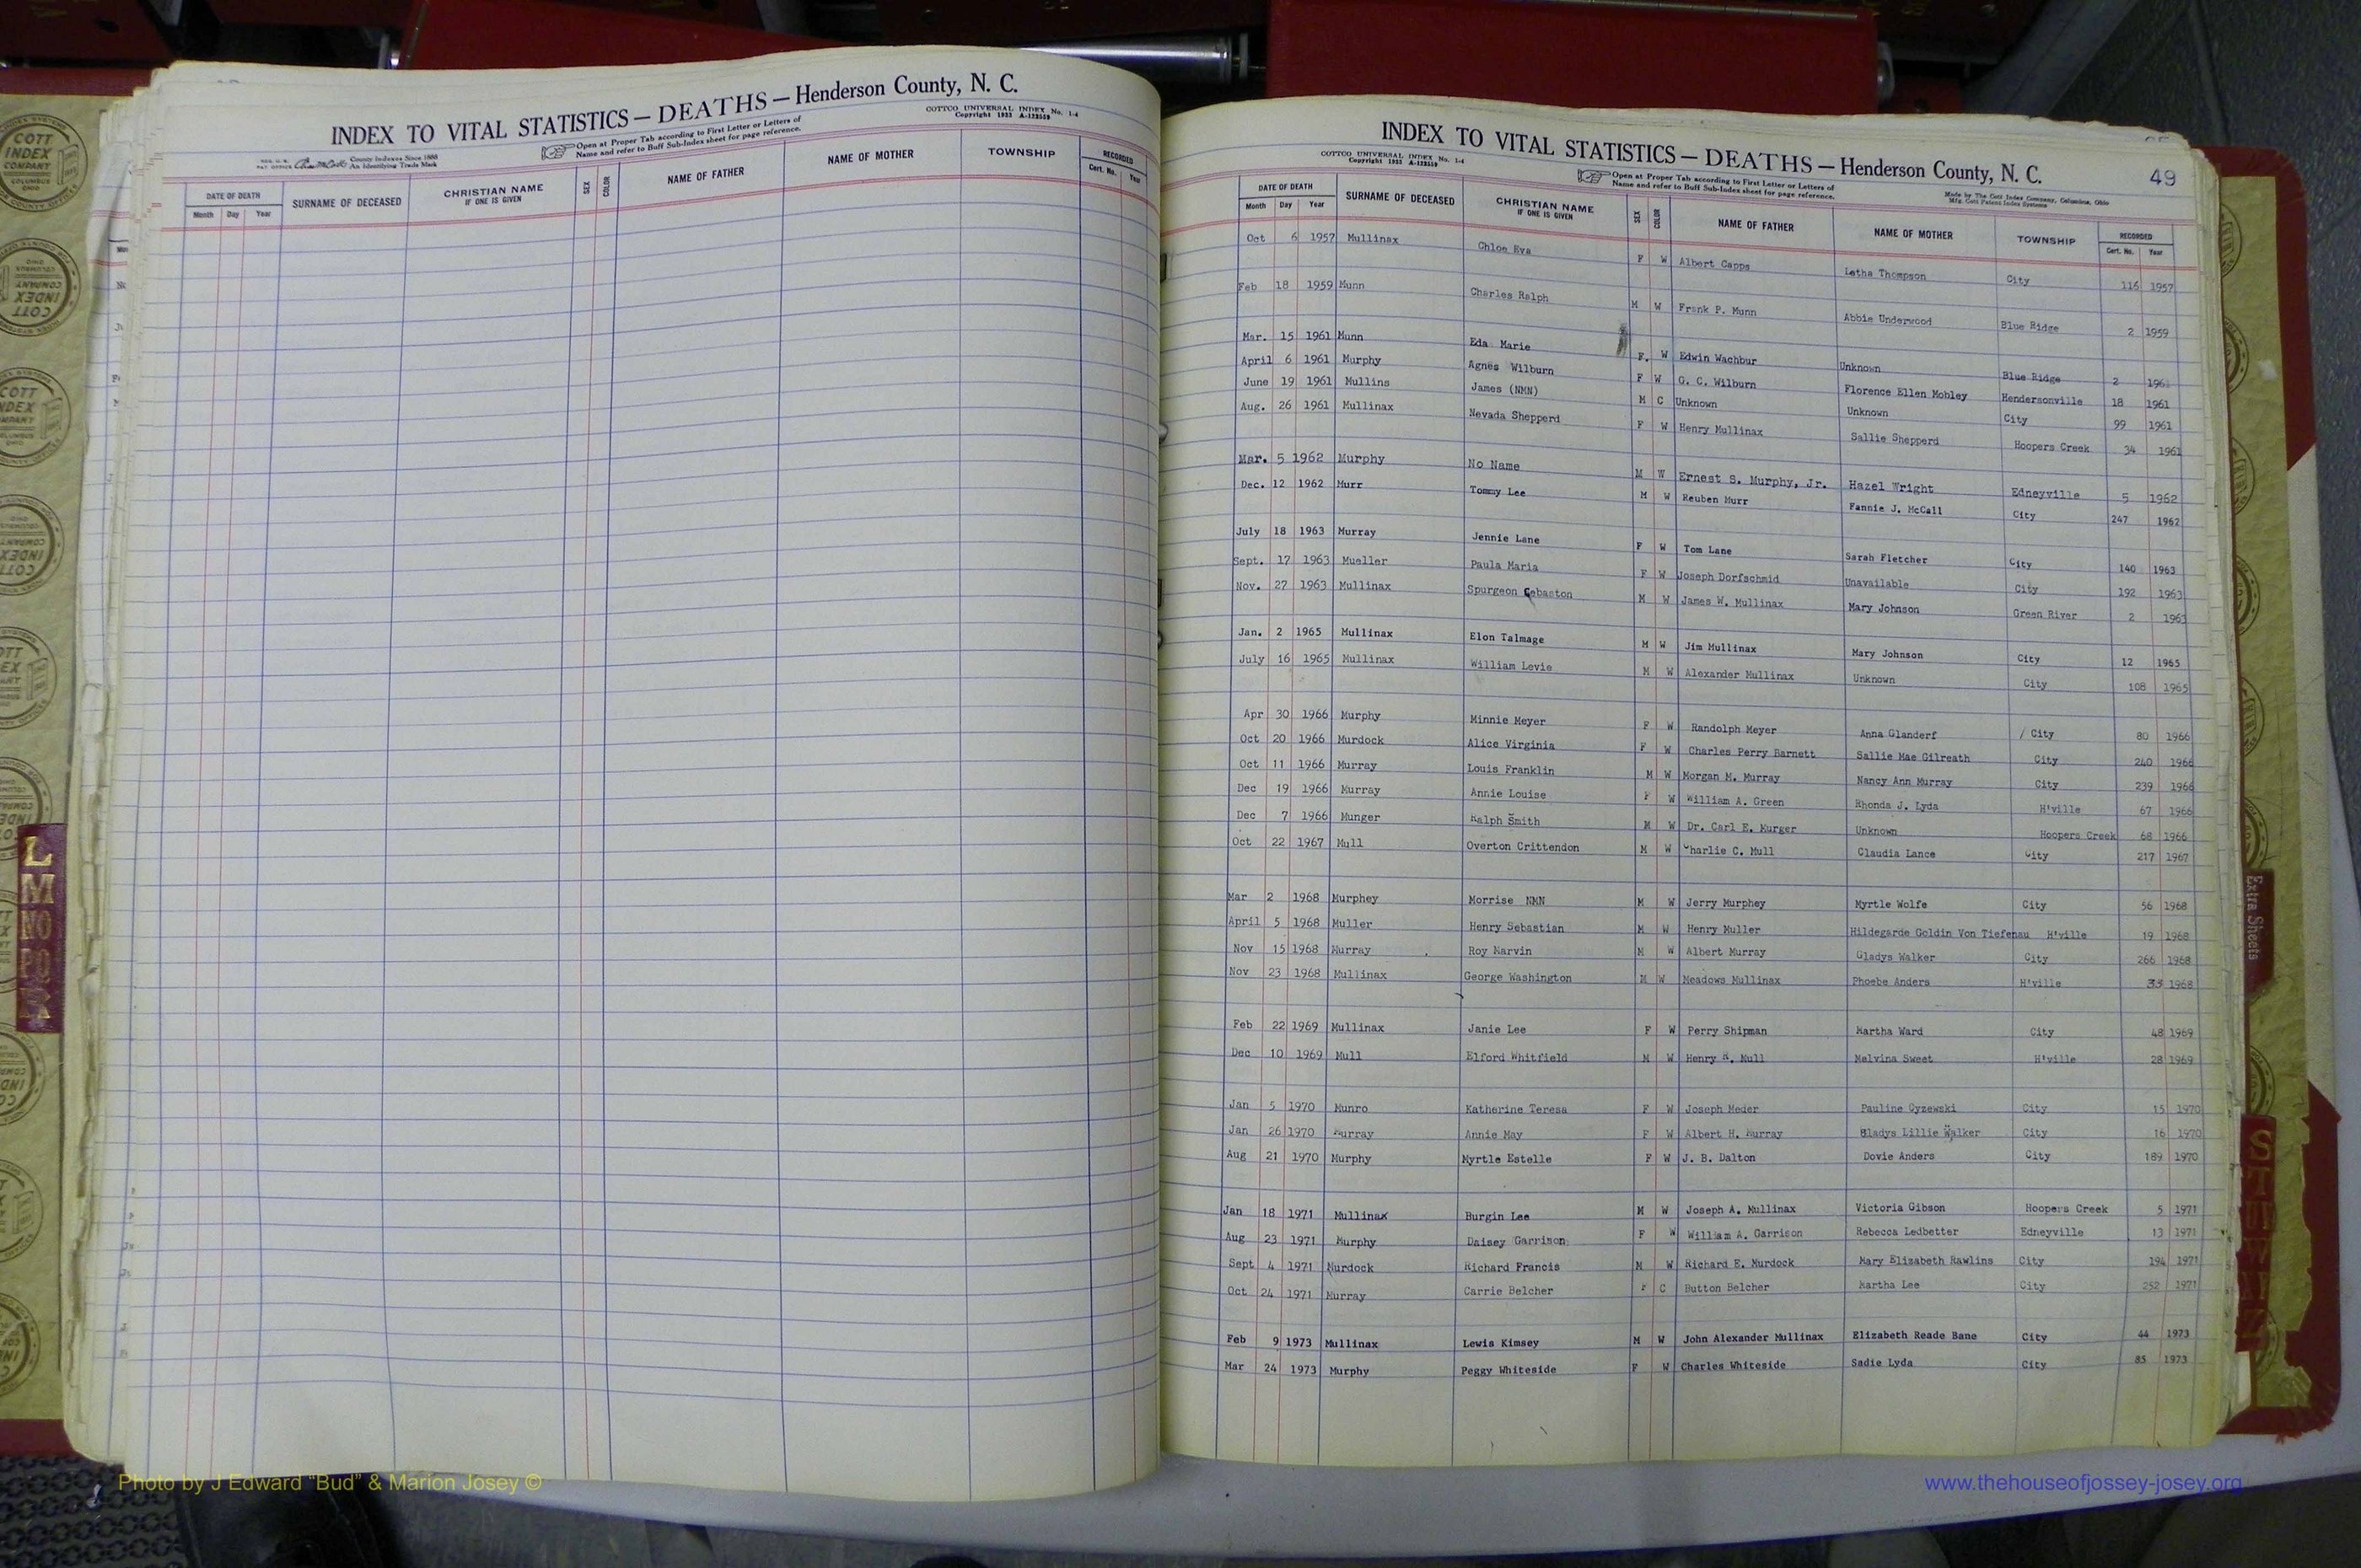 INDEX TO VITAL STATISTICS — DEATHS — Henderson County, N. C.
COTTCO UNIVERSAL INDEX No. 1-4
Copyright 1933 A-122559
County Indexes Since 1888
An Identifying Trade Mark
Open at Proper Tab according to First Letter or Letters of
Name and refer to Buff Sub-Index sheet for page reference.
DATE OF DEATH SURNAME OF DECEASED CHRISTIAN NAME SEX COLOR NAME OF FATHER NAME OF MOTHER TOWNSHIP RECORDED
Month Day Year IF ONE IS GIVEN Cert. No. Year
INDEX TO VITAL STATISTICS — DEATHS — Henderson County, N. C. 49
COTTCO UNIVERSAL INDEX No. 1-4
Copyright 1933 A-122559
Open at Proper Tab according to First Letter or Letters of
Name and refer to Buff Sub-Index sheet for page reference.
Made by The Cott Index Company, Columbus, Ohio
Mfg. Cott Patent Index Systems
DATE OF DEATH SURNAME OF DECEASED CHRISTIAN NAME SEX COLOR NAME OF FATHER NAME OF MOTHER TOWNSHIP RECORDED
Month Day Year IF ONE IS GIVEN Cert. No. Year
Oct 6 1957 Mullinax Chloe Eva F W Albert Capps Letha Thompson City 116 1957
Feb 18 1959 Munn Charles Ralph M W Frank P. Munn Abbie Underwood Blue Ridge 2 1959
Mar. 15 1961 Munn Eda Marie F. W Edwin Wachbur Unknown Blue Ridge 2 1961
April 6 1961 Murphy Agnes Wilburn F W G. C. Wilburn Florence Ellen Mobley Hendersonville 18 1961
June 19 1961 Mullins James (NMN) M C Unknown Unknown City 99 1961
Aug. 26 1961 Mullinax Nevada Shepperd F W Henry Mullinax Sallie Shepperd Hoopers Creek 34 1961
Mar. 5 1962 Murphy No Name M W Ernest S. Murphy, Jr. Hazel Wright Edneyville 5 1962
Dec. 12 1962 Murr Tommy Lee M W Reuben Murr Fannie J. McCall City 247 1962
July 18 1963 Murray Jennie Lane F W Tom Lane Sarah Fletcher City 140 1963
Sept. 17 1963 Mueller Paula Maria F W Joseph Dorfschmid Unavailable City 192 1963
Nov. 27 1963 Mullinax Spurgeon M W James W. Mullinax Mary Johnson Green River 2 1963
Jan. 2 1965 Mullinax Elon Talmage M W Jim Mullinax Mary Johnson City 12 1965
July 16 1965 Mullinax William Levie M W Alexander Mullinax Unknown City 108 1965
Apr 30 1966 Murphy Minnie Meyer F W Randolph Meyer Anna Glanderf / City 80 1966
Oct 20 1966 Murdock Alice Virginia F W Charles Perry Barnett Sallie Mae Gilreath City 240 1966
Oct 11 1966 Murray Louis Franklin M W Morgan M. Murray Nancy Ann Murray City 239 1966
Dec 19 1966 Murray Annie Louise F W William A. Green Rhonda J. Lyda H'ville 67 1966
Dec 7 1966 Munger Ralph Smith M W Dr. Carl E. Murger Unknown Hoopers Creek 68 1966
Oct 22 1967 Mull Overton Crittendon M W Charlie C. Mull Claudia Lance City 217 1967
Mar 2 1968 Murphey Morrise NMN M W Jerry Murphey Myrtle Wolfe City 56 1968
April 5 1968 Muller Henry Sebastian M W Henry Muller Hildegarde Goldin Von Tiefenau H'ville 19 1968
Nov 15 1968 Murray Roy Marvin M W Albert Murray Gladys Walker City 266 1968
Nov 23 1968 Mullinax George Washington M W Meadows Mullinax Phoebe Anders H'ville 33 1968
Feb 22 1969 Mullinax Janie Lee F W Perry Shipman Martha Ward City 48 1969
Dec 10 1969 Mull Elford Whitfield M W Henry Mull Melvina Sweet H'ville 28 1969
Jan 5 1970 Munro Katherine Teresa F W Joseph Meder Pauline Cyzewski City 15 1970
Jan 26 1970 Murray Annie May F W Albert H. Murray Gladys Lillie Walker City 16 1970
Aug 21 1970 Murphy Myrtle Estelle F W J. B. Dalton Dovie Anders City 189 1970
Jan 18 1971 Mullinax Burgin Lee M W Joseph A. Mullinax Victoria Gibson Hoopers Creek 5 1971
Aug 23 1971 Murphy Daisey Garrison F W William A. Garrison Rebecca Ledbetter Edneyville 13 1971
Sept 4 1971 Murdock Richard Francis M W Richard E. Murdock Mary Elizabeth Rawlins City 194 1971
Oct 24 1971 Murray Carrie Belcher F C Button Belcher Martha Lee City 252 1971
Feb 9 1973 Mullinax Lewis Kimsey M W John Alexander Mullinax Elizabeth Reade Bane City 44 1973
Mar 24 1973 Murphy Peggy Whiteside F W Charles Whiteside Sadie Lyda City 85 1973
COTT INDEX COMPANY COLUMBUS OHIO
L
M
NO
Extra Sheets
S
T
Photo by J Edward “Bud” & Marion Josey ©
www.thehouseofjossey-josey.org